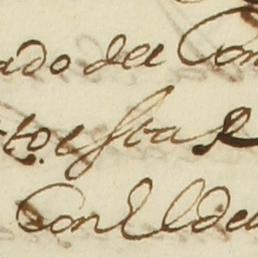 ado del Con
to, esta R
Con El de